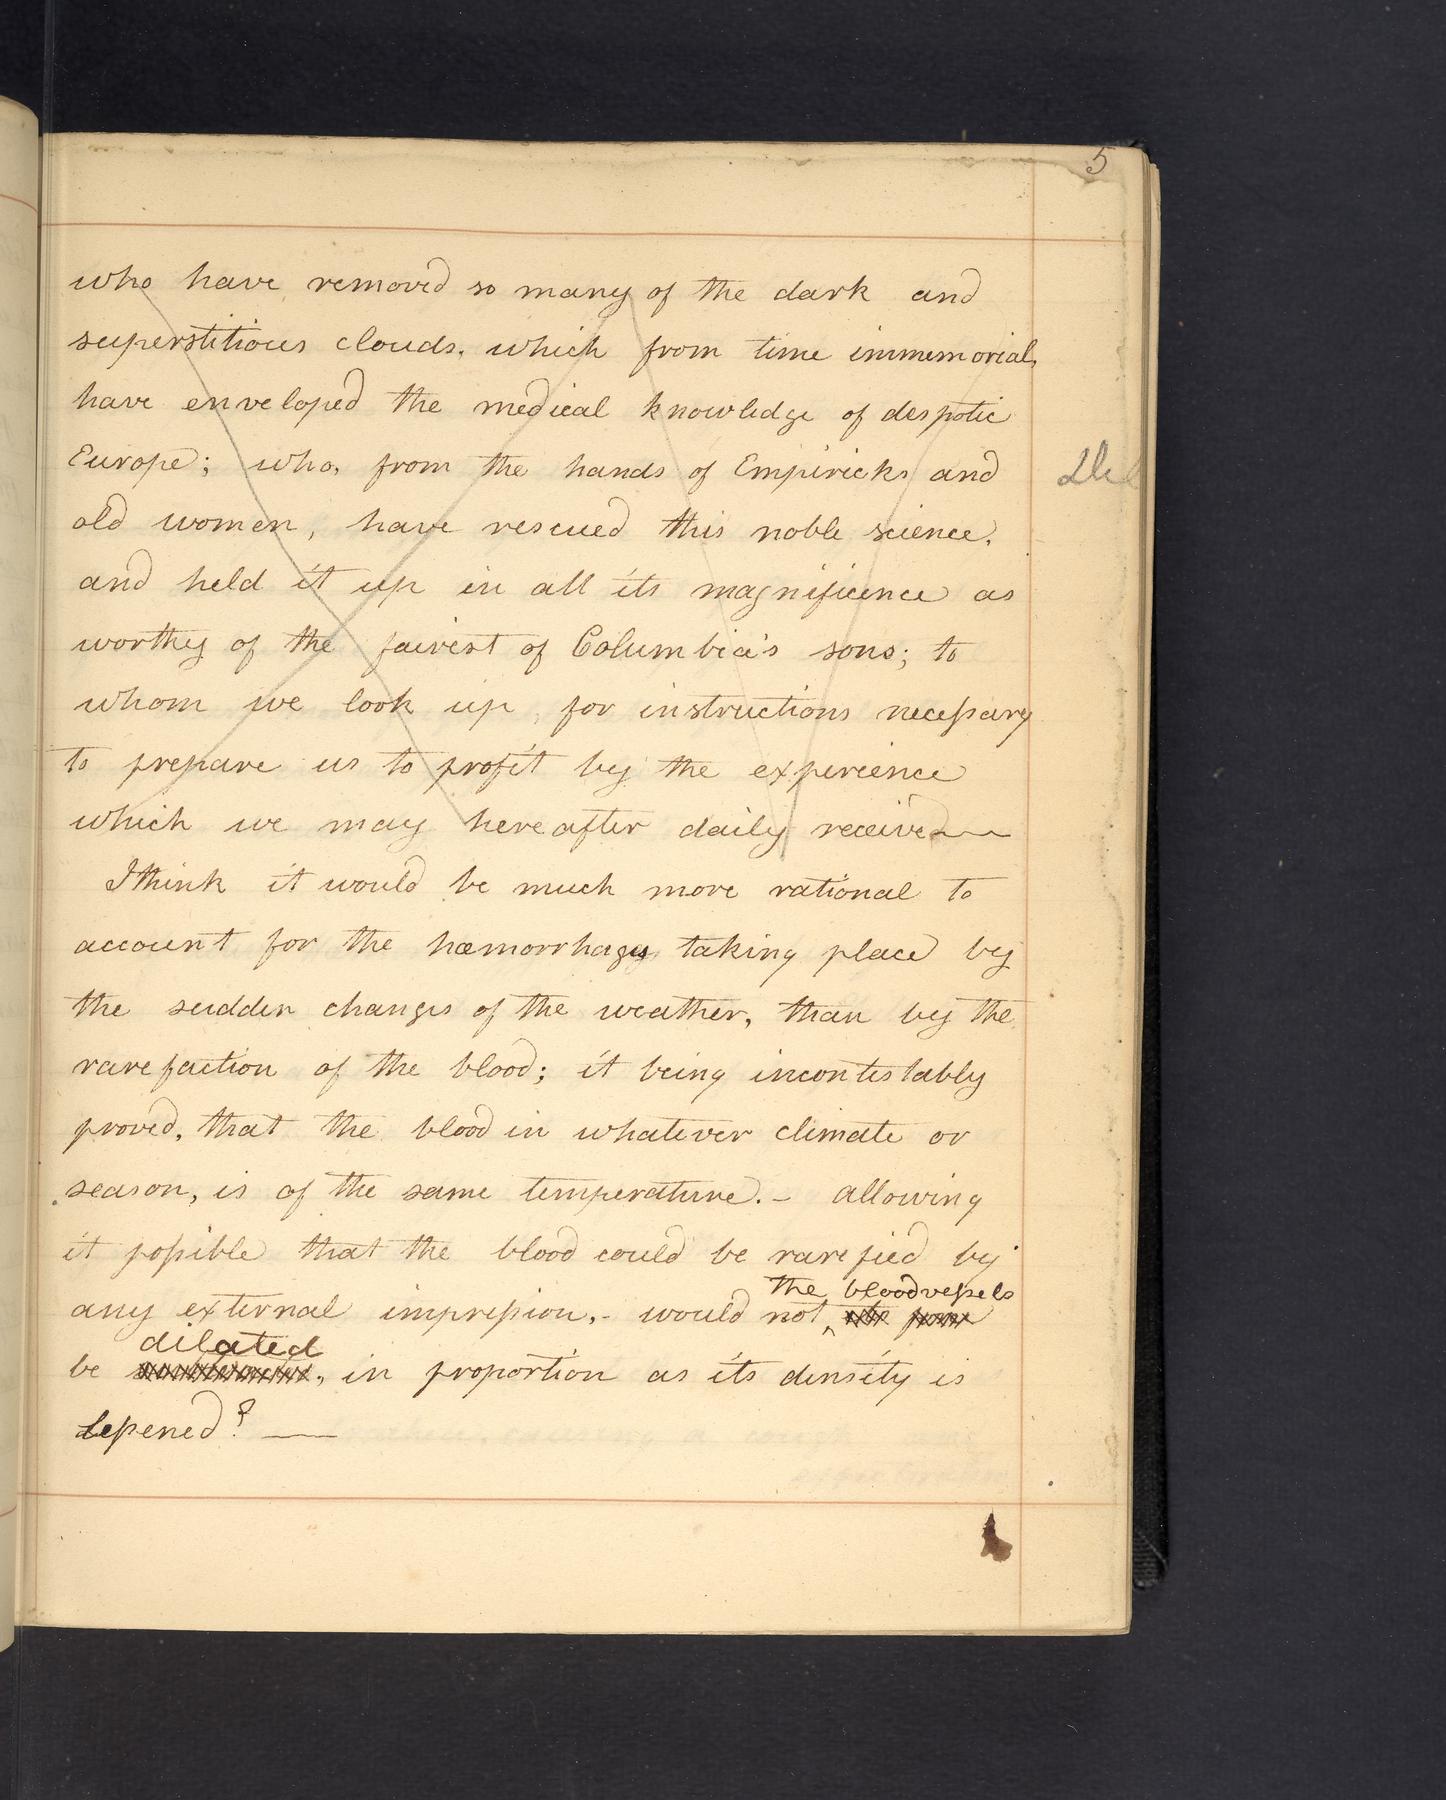 5
who have removed so many of the dark and
superstitious clouds, which from time immemorial,
have enveloped the medical knowledge of despotic
Europe; who, from the hands of Empiricks and
old women, have rescued this noble science,
and held it up in all its magnificence as
worthy of the fairest of Columbia's sons; to
whom we look up, for instructions necessary
to prepare us to profit by the experience
which we may hereafter daily receive
I think it would be much more rational to
account for the hæmorrhagy taking place by
the sudden changes of the weather, than by the
rarefaction of the blood; it being incontestably
proved, that the blood in whatever climate or
season, is of the same temperature. — allowing
it possible that the blood could be rarefied by
the bloodvessels
any external impression, - would not
dilated
be , in proportion as its density is
lessened? —